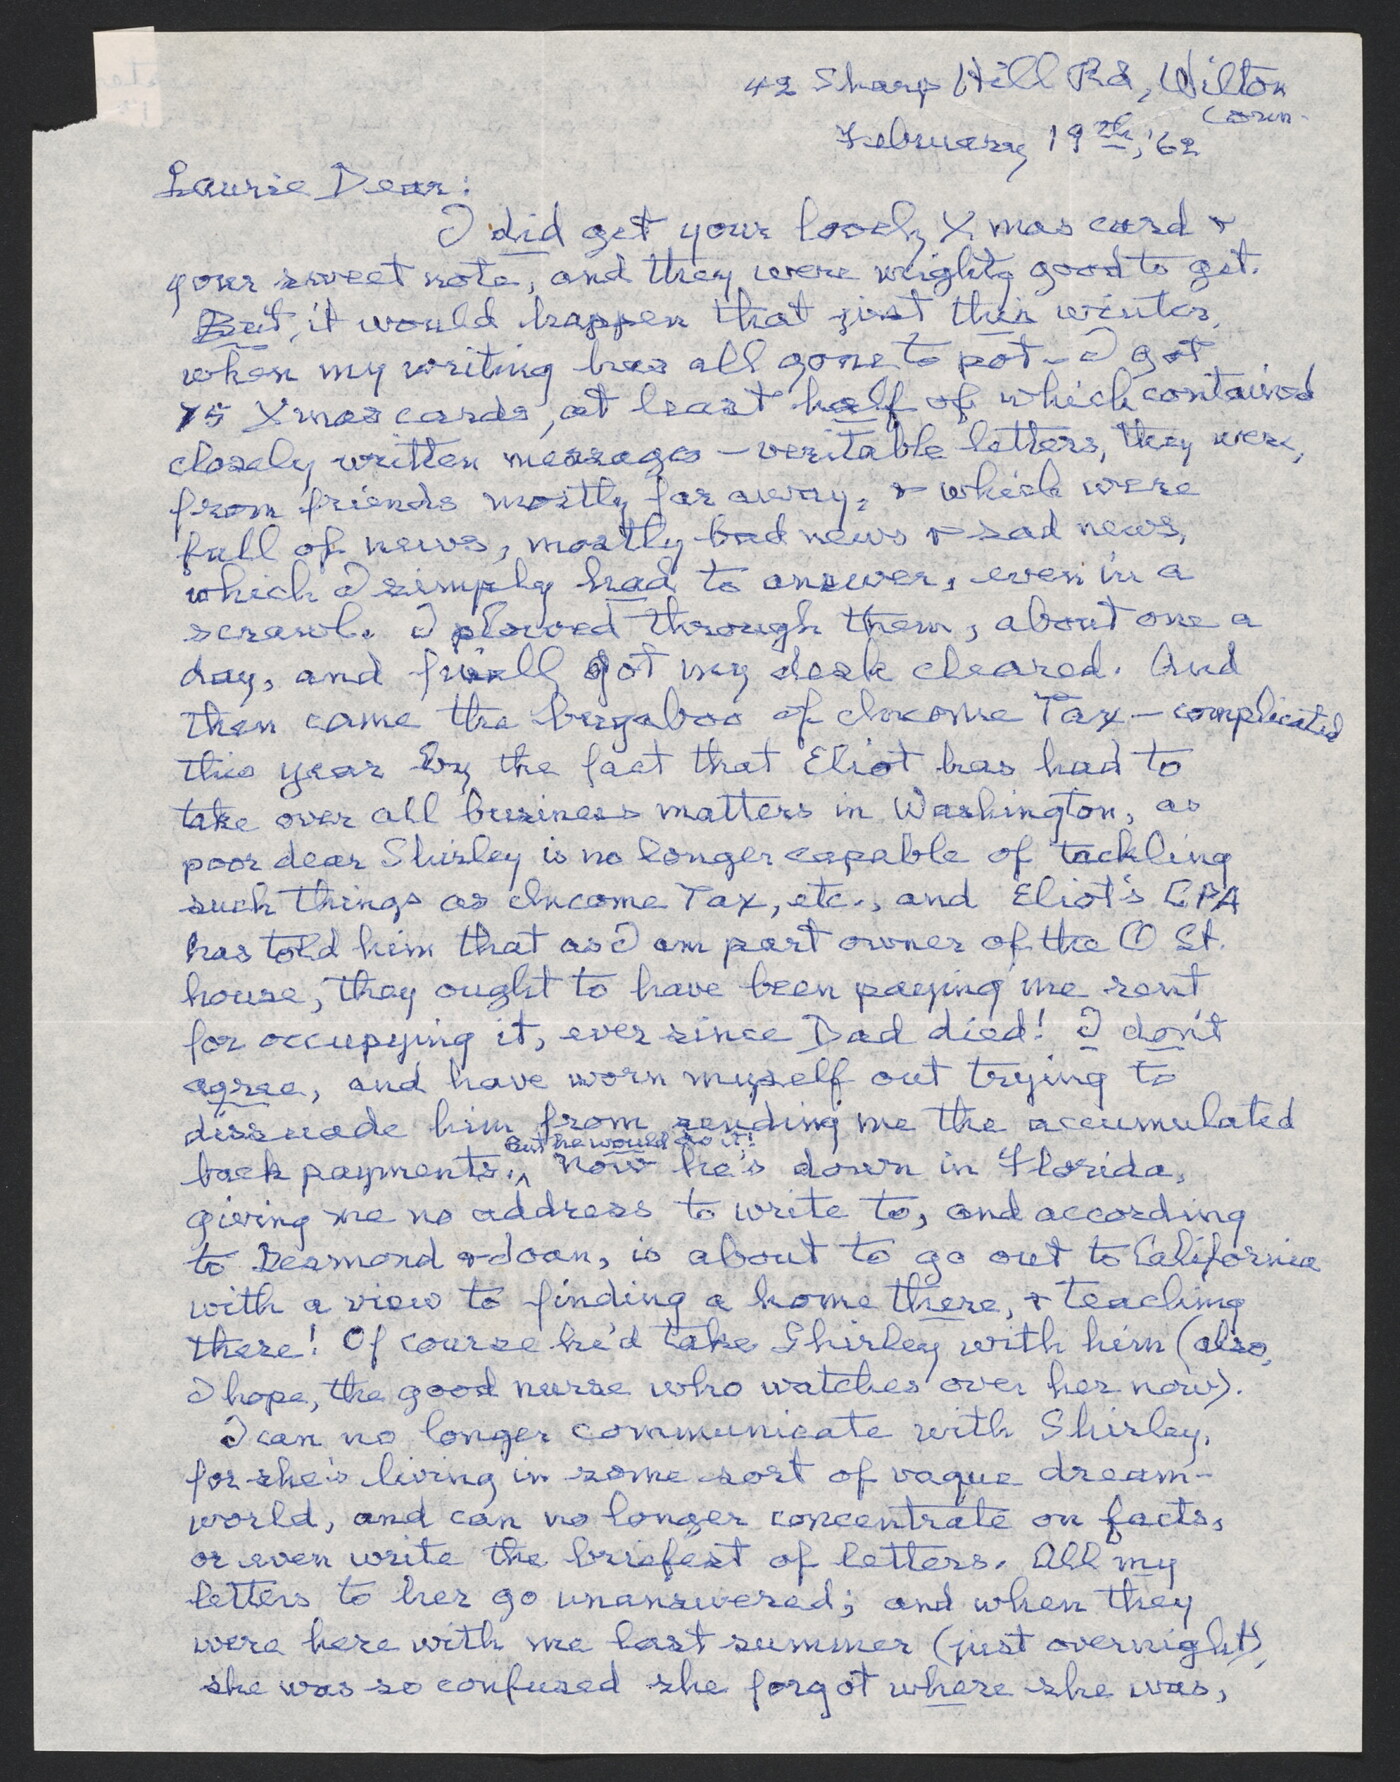 42 Sharp Hill Rd, Wilton
Conn.
February 19th, '62
Laurie Dear:
I did get your lovely Xmas card &
your sweet note, and they were mighty good to get.
But, it would happen that just this winter,
when my writing has all gone to pot - I got
75 Xmas cards, at least half of which contained
closely written messages - veritable letters, they were,
from friends mostly far away, & which were
full of news, mostly bad news & sad news,
which I simply had to answer, even in a
scrawl. I plowed through them, about one a
day, and got my desk cleared. And
then came the bugaboo of Income Tax - complicated
this year by the fact that Eliot has had to
take over all business matters in Washington, as
poor dear Shirley is no longer capable of tackling
such things as Income Tax, etc., and Eliot's CPA
has told him that as I am part owner of the O St.
house, they ought to have been paying me rent
for occupying it, ever since Dad died! I don't
agree, and have worn myself out trying to
dissuade him from sending me the accumulated
back payments. But he would do it! Now he's down in Florida,
giving me no address to write to, and according
to Desmond & Joan, is about to go out to California
with a view to finding a home there, & teaching
there! Of course he'd take Shirley with him (also,
I hope, the good nurse who watches over her now).
I can no longer communicate with Shirley,
for she's living in some sort of vague dream-
world, and can no longer concentrate on facts,
or even write the briefest of letters. All my
letters to her go unanswered; and when they
were here with me last summer (just overnight),
she was so confused she forgot where she was,